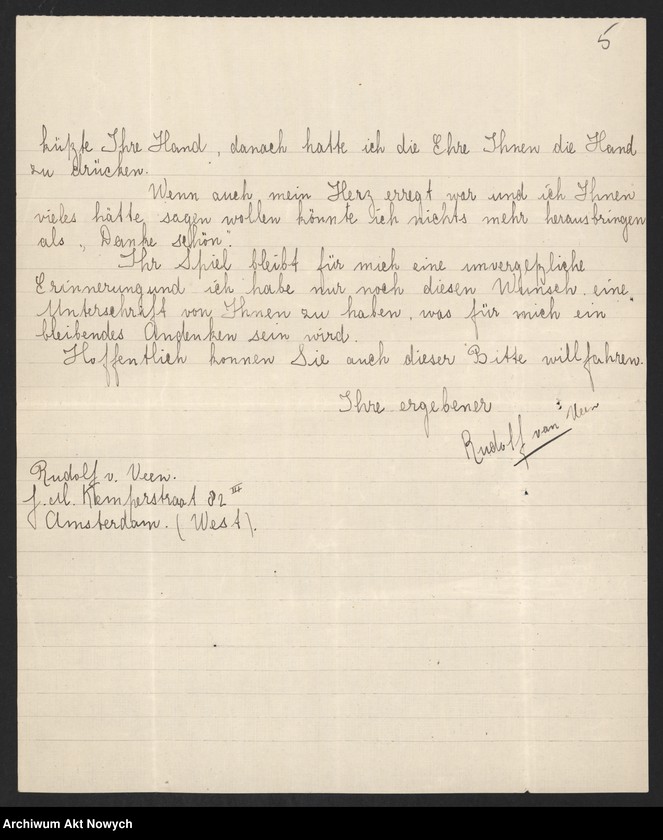 5
küßte Ihre Hand, danach hatte ich die Ehre Ihnen die Hand
zu drücken.
Wenn auch mein Herz erregt war und ich Ihnen
vieles hätte sagen wollen könnte ich nichts mehr herausbringen
als „Danke schön".
Ihr Spiel bleibt für mich eine unvergeßliche
Erinnerung und ich habe nur noch diesen Wunsch eine
Unterschrift von Ihnen zu haben, was für mich ein
bleibendes Andenken sein wird.
Hoffentlich konnen Sie auch dieser Bitte willfahren.
Ihre ergebener
Rudolf van Veen
Rudolf v. Veen.
J. M. Kemperstraat 82 III
Amsterdam. (West).
Archiwum Akt Nowych